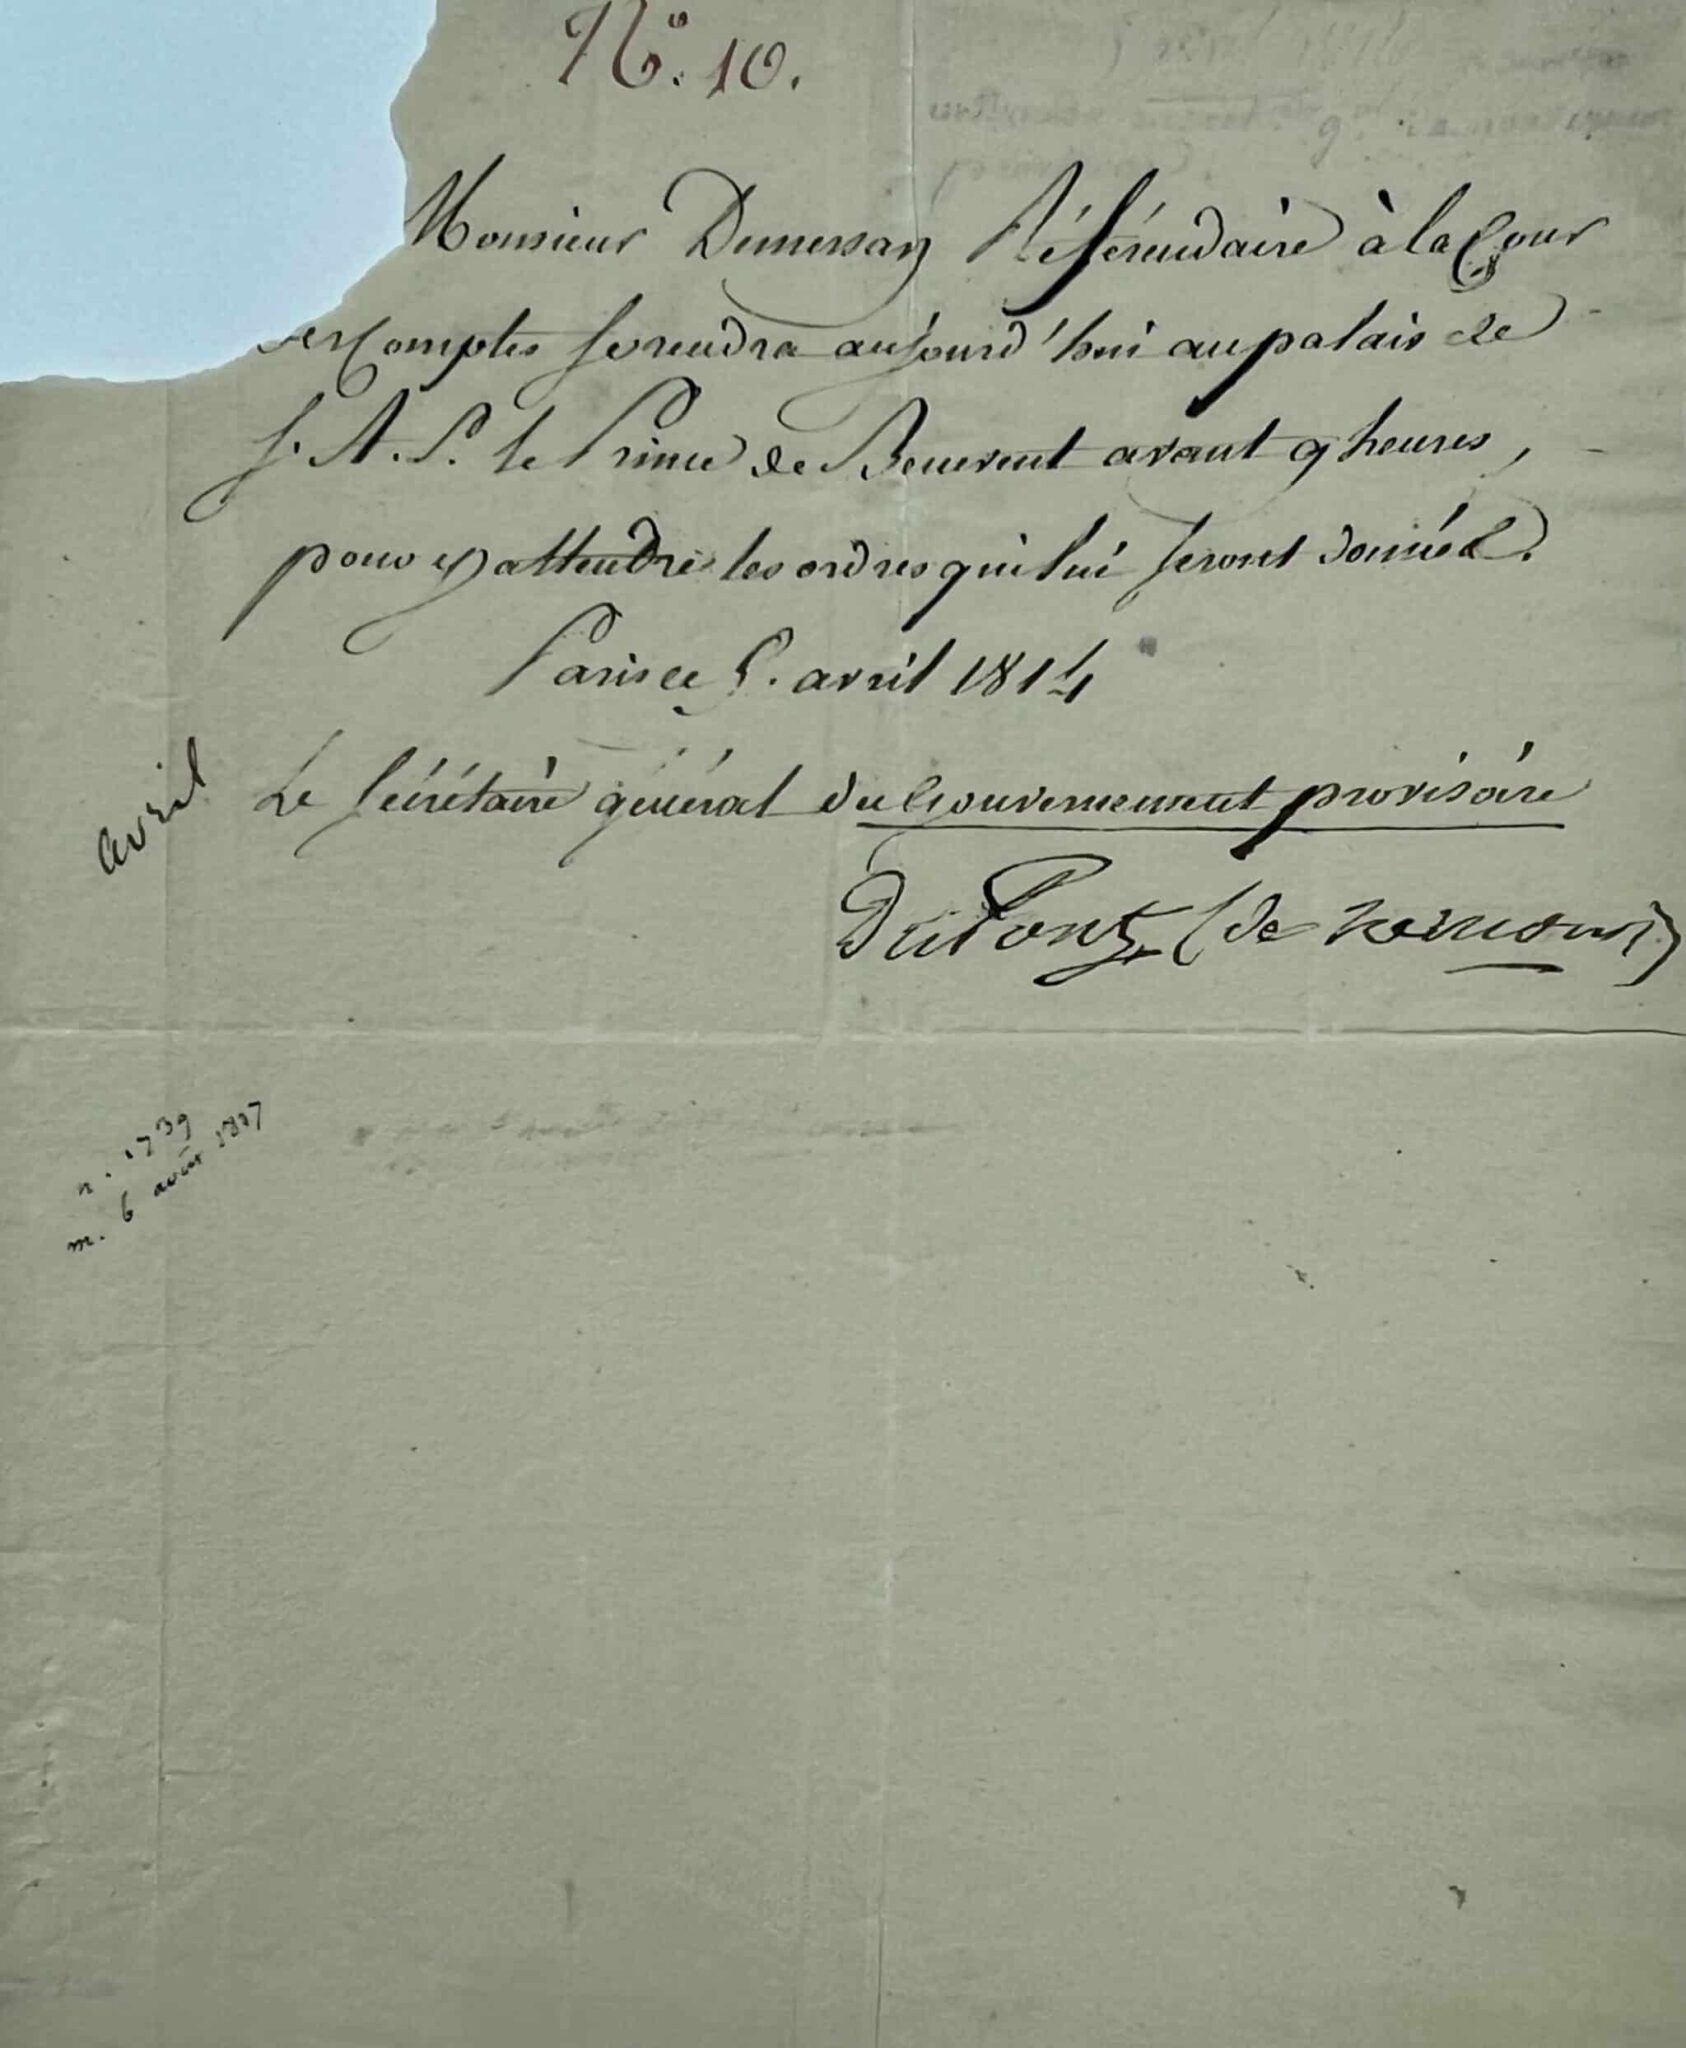 N.º 10.
Monsieur Dumersan Référendaire à la Cour
des Comptes se rendra aujourd'hui au palais de
S. A. S. le Prince de Benevent avant 9 heures,
pour y attendre les ordres qui lui seront donnés.
Paris ce 5. avril 1814
Le Sécrétaire général du Gouvernement provisoire
DuPont (de Nemours)
avril
n. 1739
m. 6 août 1817